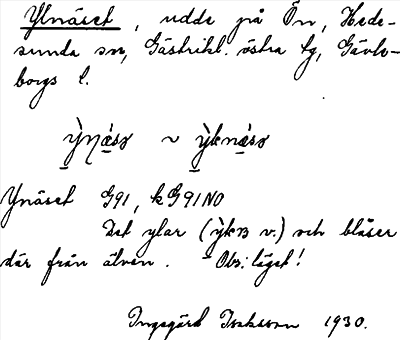 Ylnäset, udde på Ön, Hede-
sunda sn, Gästrikl. östra tg, Gävle-
borgs l.
ỳŋǽsə ~ ỳknǽsə
Ynäset G91, kG91NO
Det ylar (ỳkɴ v.) och blåser
där från älven. - Obs: läget!
Ingegärd Isaksson 1930.